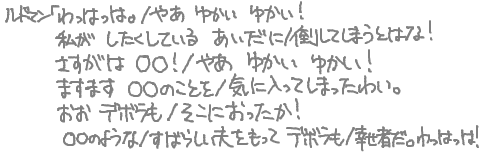 ルドマン「わっはっは。/やあ ゆかい ゆかい!
私が したくしている あいだに/倒してしまうとはな!
さすがは ○○!/やあ ゆかい ゆかい!
ますます ○○のことを/気に入ってしまったわい。
おお デボラも/そこにおったか!
○○のような/すばらしい夫をもって デボラも/幸せ者だ。わっはっは!